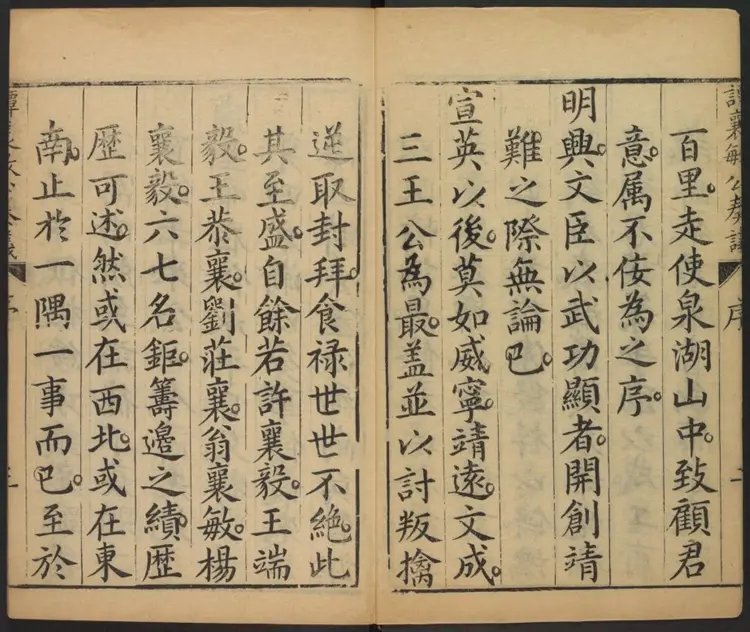 百里走使泉湖山中致顧君
意属不佞為之序
明興文臣以武功顯者開創靖
難之際無論巳
宣英以後莫如威寧靖遠文成
三王公為最盖並以討叛擒
譚襄敏公奏議
序
逆取封拜食禄世世不絶此
其至盛自餘若許襄毅王端
毅王恭襄劉莊襄翁襄敏楊
襄毅六七名鉅籌邊之績歴
歴可述然或在西北或在東
南止於一隅一事而巳至於